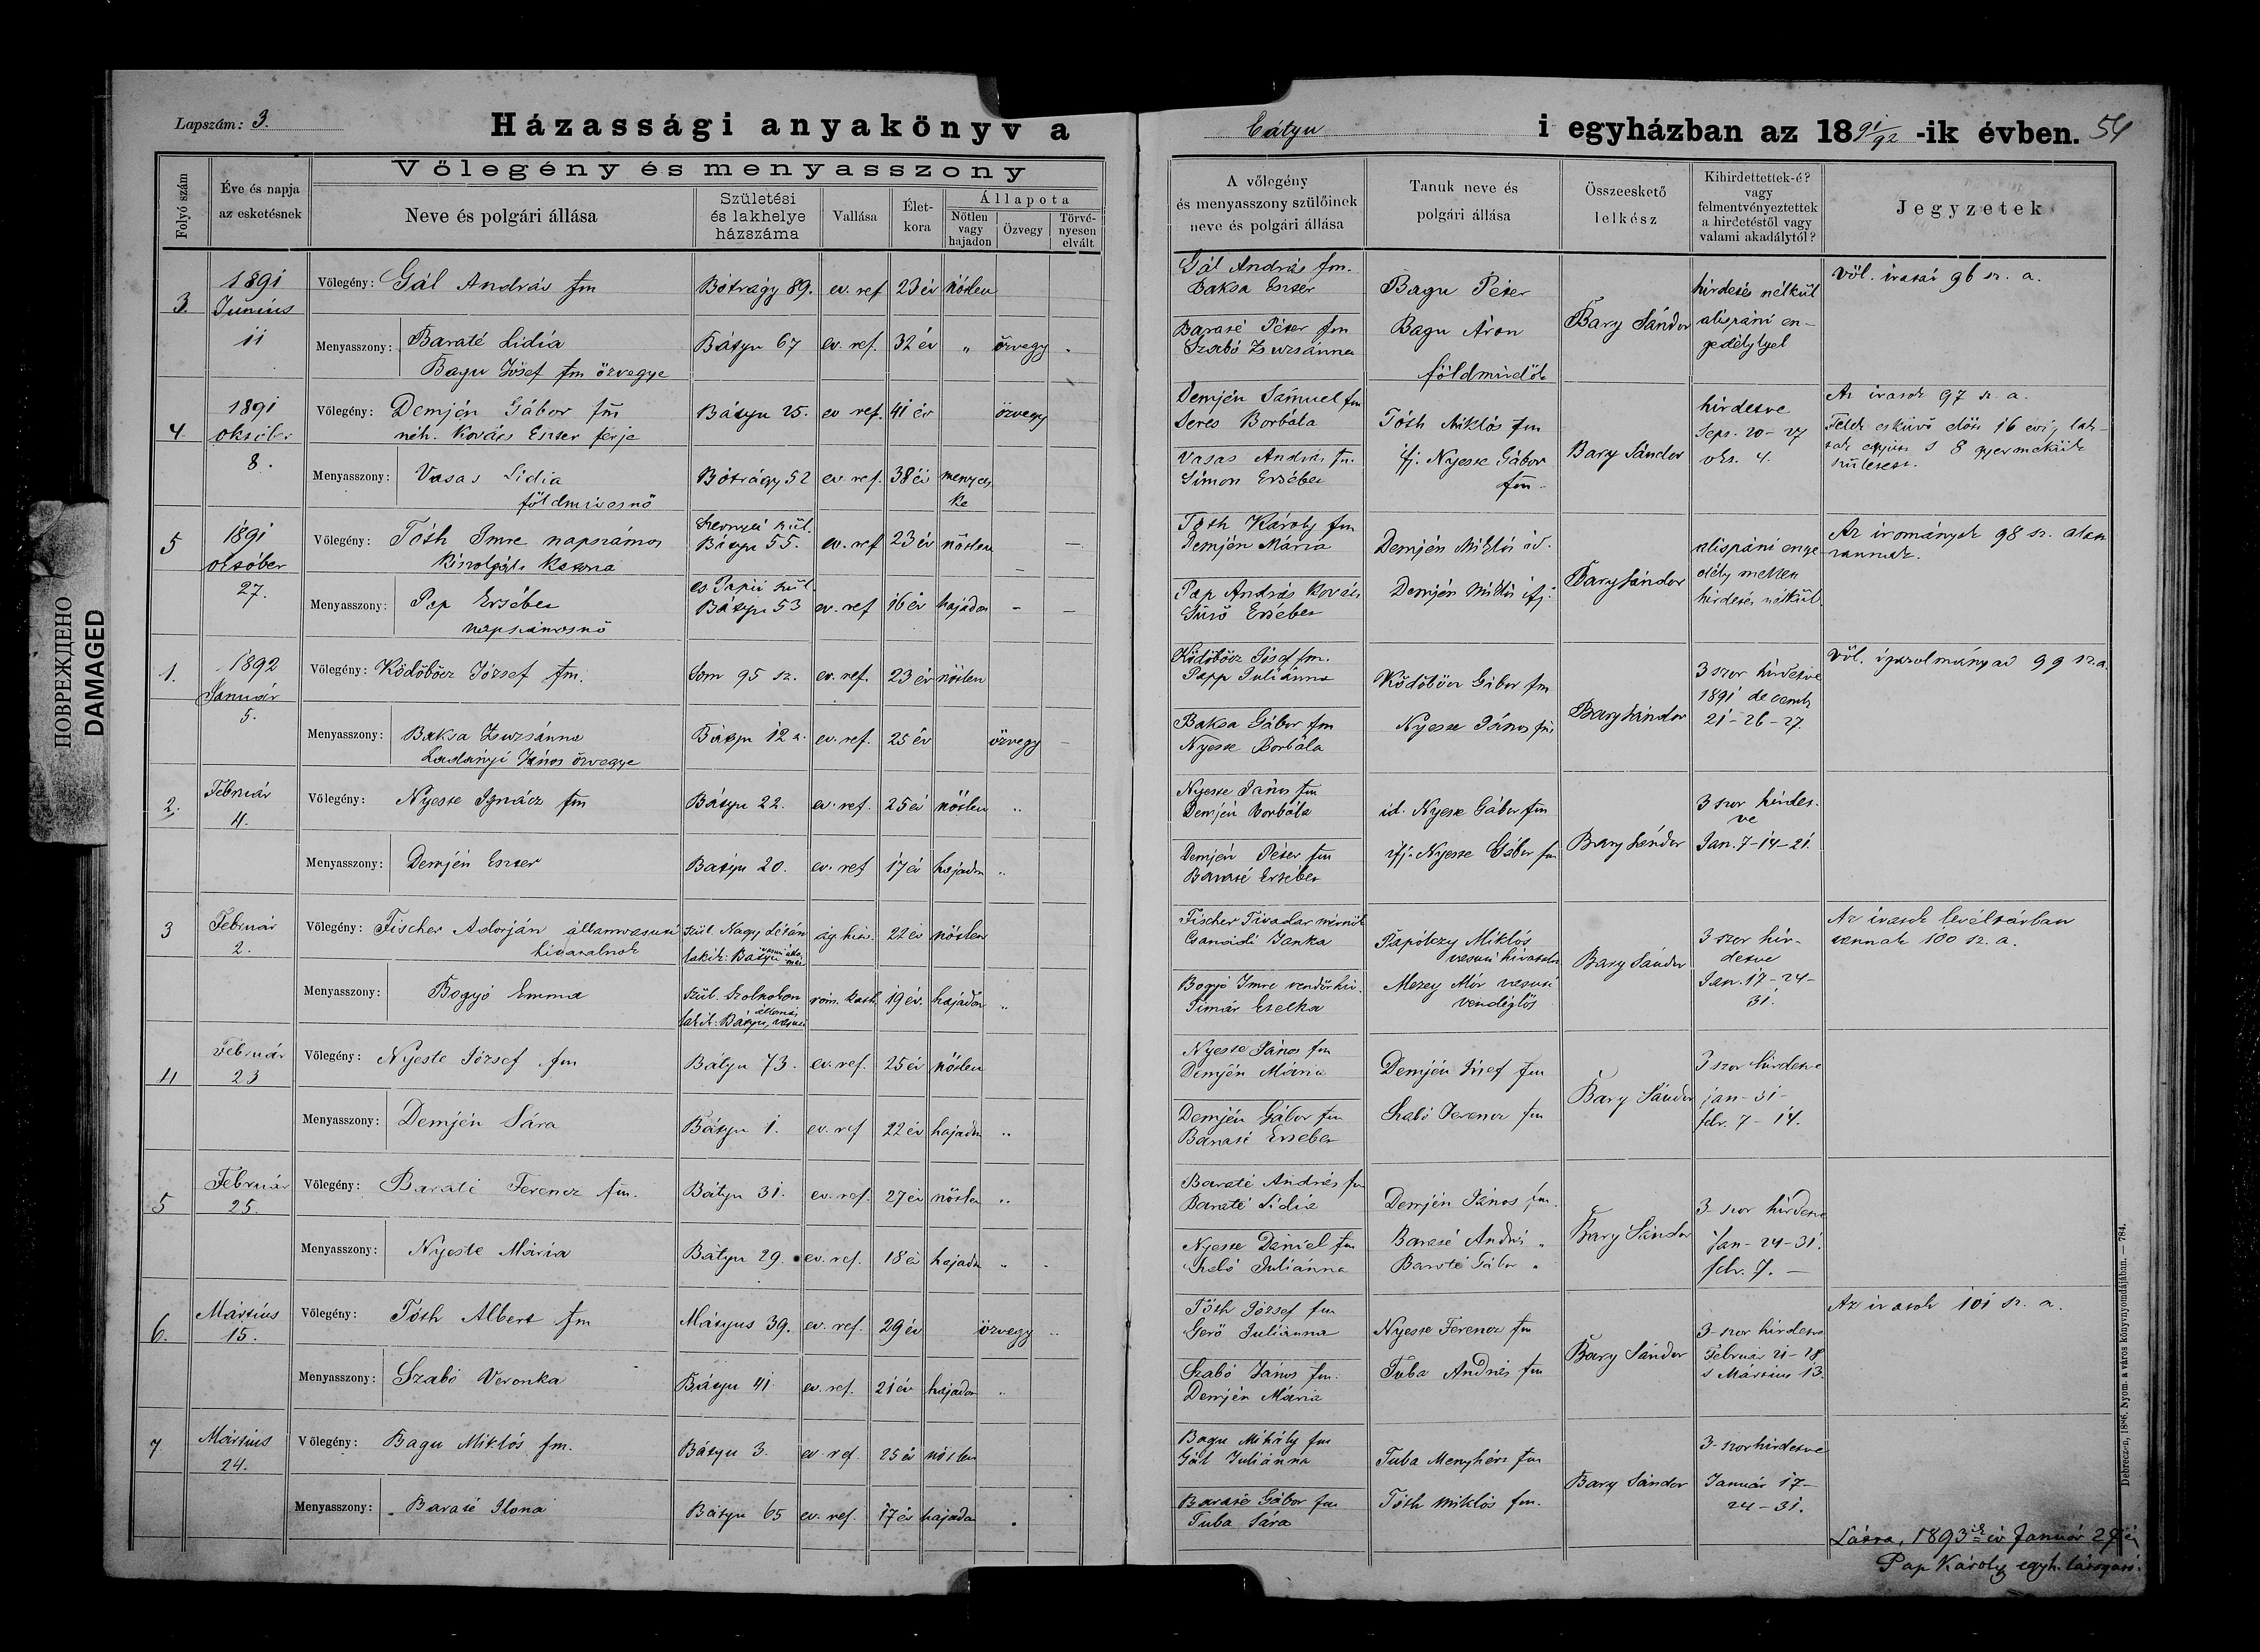 Lapszám: 3.
Házassági anyakönyv a
Bátyu i egyházban az 18 91/92 -ik évben. 54
Folyó szám
Éve és napja
az esketésnek
Vőlegény és menyasszony
Neve és polgári állása
Születési
és lakhelye
házszáma
Vallása
Élet-
kora
Állapota
Nőtlen
vagy
hajadon
Özvegy
Törvé-
nyesen
elvált
A vőlegény
és menyasszony szülőinek
neve és polgári állása
Tanuk neve és
polgári állása
Összeeskető
lelkész
Kihirdettettek-é?
vagy
felmentvényeztettek
a hirdetéstől vagy
valami akadálytól?
Jegyzetek
3. 1891 Junius 11
Vőlegény: Gál András fm Bótrágy 89. ev. ref 23 év nőtlen
Menyasszony: Baraté Lidia Bátyu 67 ev. ref. 32 év " özvegy
Bagu Jósef fm özvegye
Gál András fm.
Baksa Eszter
Baraté Péter fm
Szabó Zsuzsánna
Bagu Péter
Bagu Áron
földmivelők
Bary Sándor
hirdetés nélkül
alispáni en-
gedélylyel
Vől. iratai 96 sz. a.
4. 1891 október 8.
Vőlegény: Demjén Gábor fm Bátyu 25. ev ref. 41 év özvegy
néh. Kovács Eszter férje
Menyasszony: Vasas Lidia Bótrágy 52 ev. ref. 38 év menyecs
ke
földmivesnő
Demjén Sámuel fm
Seres Borbála
Vasas András fm
Simon Erzsébet
Tóth Miklós fm
ifj. Nyeste Gábor
fm.
Bary Sándor
hirdetve
Sept. 20-27
okt. 4.
Az iratok 97 sz. a.
esküvő előtt 16 évig lak-
tak együtt s 8 gyermekük
született.
5 1891 október 27.
Vőlegény: Tóth Imre napszámos szül. Bátyu 55. ev. ref 23 év nőtlen
kiszolgált katona
Menyasszony: Pap Erzsébet Papii szül. Bátyu 53 ev. ref 16 év hajadon
napszámosnő
Tóth Károly fm
Demjén Mária
Pap András kovács
Erzsébet
Demjén Miklós id.
Demjén Miklós ifj.
Bary Sándor
alispáni enge
dély mellett
hirdetés nélkül.
Az irományok 98 sz. alatt
vannak.
1. 1892 Január 5.
Vőlegény: Ködöböcz József fm. Som 95 sz. ev. ref. 23 év nőtlen
Menyasszony: Baksa Zsuzsánna Bátyu 12 ev. ref. 25 év özvegy
Ladányi János özvegye
Ködöböcz Jósef fm.
Papp Juliánna
Baksa Gábor fm
Nyeste Borbála
Ködöböcz Gábor fm
Nyeste János fm
Bary Sándor
3 szor hirdetve
1891 decemb
21-26-27.
Vől. igazolmányai 99 sz. a.
2. Február 4.
Vőlegény: Nyeste Ignácz fm Bátyu 22. ev. ref. 25 év nőtlen "
Menyasszony: Demjén Eszter Bátyu 20. ev. ref 17 év hajadon "
Nyeste János fm
Demjén Borbála
Demjén Péter fm
Baraté Erzsébet
id. Nyeste Gábor fm
ifj. Nyeste Gábor fm
Bary Sándor
3 szor hirdet-
ve
Jan. 7-14-21.
3 Február 2.
Vőlegény: Fischer Adorján államvasuti szül. Nagy Létán ág. hitv. 22 év nőtlen
hivatalnok lakik: Bátyu
Menyasszony: Bogyó Emma szül. Szolnokon róm. kath. 19 év. hajadon "
lakik: Bátyu, vasuti
Fischer Tivadar mérnök
Csanádi Janka
Bogyó Imre
Timár Etelka
Papolczy Miklós
vasuti hivatalnok
Mezey Mór vasuti
vendéglős
Bary Sándor
3 szor hir-
detve
Jan. 17-24-
31.
Az iratok levéltárban
vannak 100 sz. a.
4 Február 23
Vőlegény: Nyeste József fm Bátyu 73. ev. ref. 25 év nőtlen
Menyasszony: Demjén Sára Bátyu 1. ev. ref 22 év hajadon "
Nyeste János fm
Demjén Mária
Demjén Gábor fm
Baraté Erzsébet
Demjén József fm
Szabó Ferencz fm
Bary Sándor
3 szor hirdetve
jan-31-
febr. 7-14.
5 Február 25.
Vőlegény: Baraté Ferencz fm. Bátyu 31. ev. ref. 27 év nőtlen "
Menyasszony: Nyeste Mária Bátyu 29. ev. ref. 18 év hajadon "
Baraté András fm
Baraté Lidia
Nyeste Dániel fm
Szabó Juliánna
Demjén János fm.
Baraté András "
Baraté Gábor "
Bary Sándor
3-szor hirdetve
Jan-24-31.
febr. 7.-
6. Mártius 15.
Vőlegény: Tóth Albert fm Mátyus 39. ev. ref. 29 év özvegy
Menyasszony: Szabó Veronka Bátyu 41 ev. ref. 21 év hajadon "
Tóth József fm
Gerő Juliánna
Szabó János fm.
Demjén Mária
Nyeste Ferencz fm
Tuba András fm
Bary Sándor
3-szor hirdetve
Február 21-28
s Mártius 13.
Az iratok 101 sz. a.
7 Mártius 24.
Vőlegény: Bagu Miklós fm. Bátyu 3. ev. ref. 25 év nőtlen
Menyasszony: Baraté Ilona Bátyu 65 ev. ref. 17 év hajadon
Bagu Mihály fm
Gál Juliánna
Baraté Gábor fm
Tuba Sára
Tuba Menyhért fm
Tóth Miklós fm.
Bary Sándor
3-szor hirdetve
Január 17-
24-31.
Látta, 1893 ik év Január 27 én
Pap Károly egyh. látogató.
Debreczen, 1886. Nyom. a város könyvnyomdájában. — 784.
ПОВРЕЖДЕНО
DAMAGED